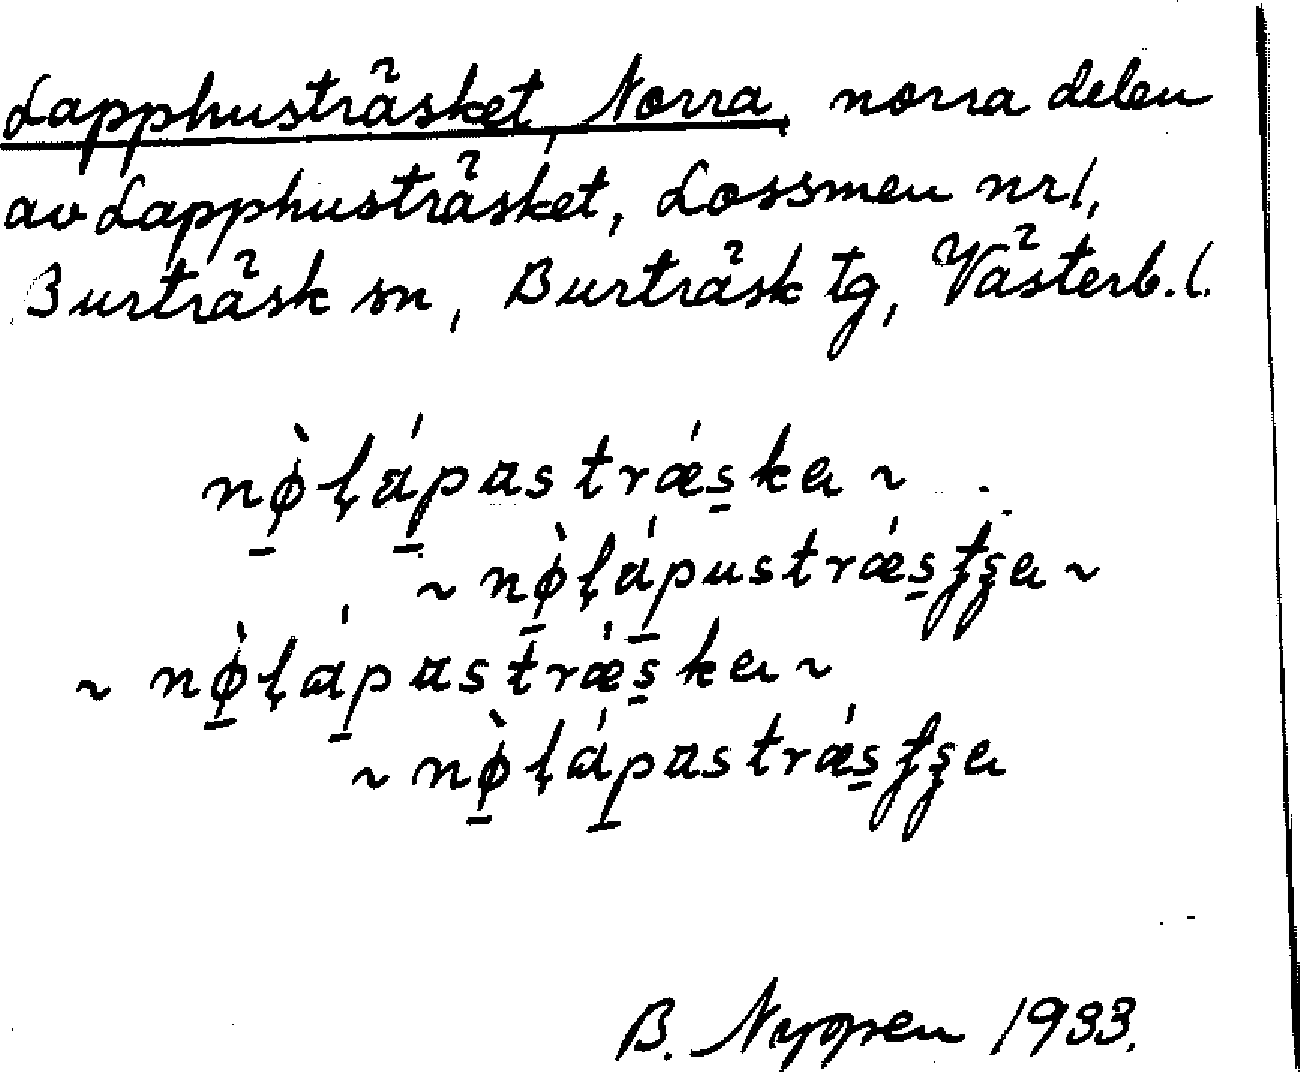 Lapphusträsket, Norra, norra delen
av Lapphusträsket, Lossmen nr 1,
Burträsk sn, Burträsk tg, Västerb. l.
nø̱̀ḷáp̱ɑstrǽs̱ka ~
~ nø̱̀ḷáp̱ustrǽs̱ƫʂa ~
~ nø̱̀ḷáp̱ɑstrǽs̱ka ~
~ nø̱̀ḷáp̱ɑstrǽs̱ƫʂa
B. Nygren 1933.